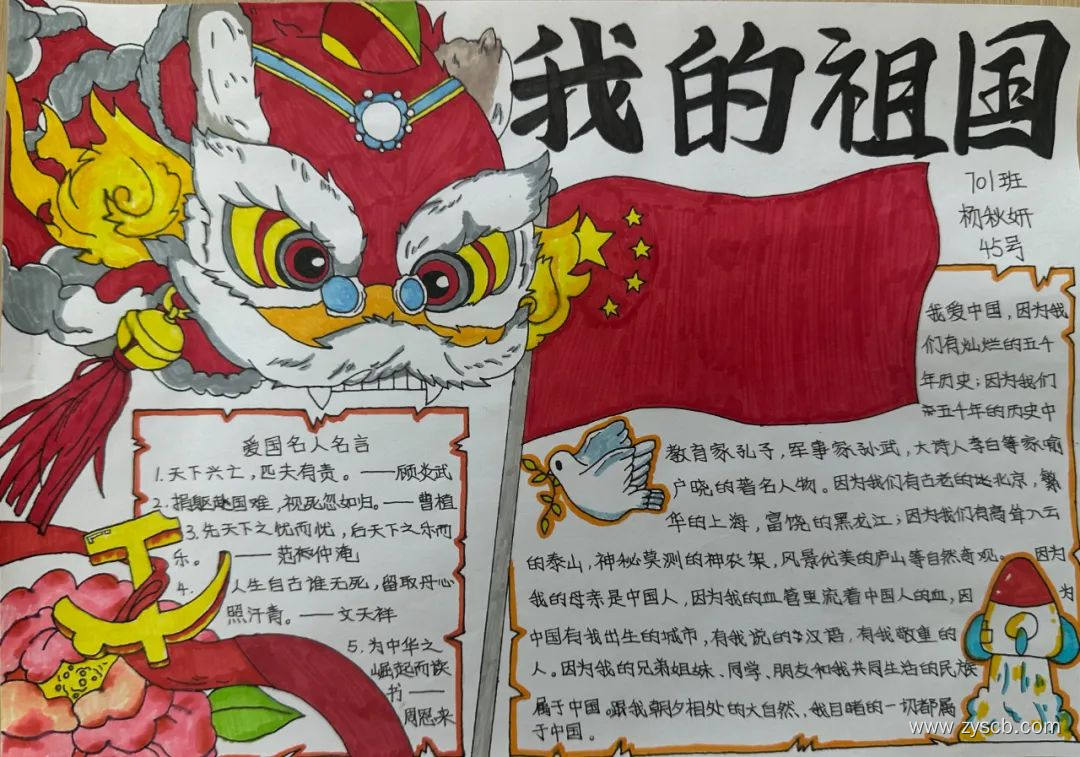 我的祖国
701班
杨秋妍
45号
爱国名人名言
1.天下兴亡，匹夫有责。——顾炎武
2.捐躯赴国难，视死忽如归。——曹植
3.先天下之忧而忧，后天下之乐而
乐。——范仲淹
4.人生自古谁无死，留取丹心
照汗青。——文天祥
5.为中华之
崛起而读
书——
周恩来
我爱中国，因为我
们有灿烂的五千
年历史；因为我们
五千年的历史中
教育家孔子，军事家孙武，大诗人李白等家喻
户晓的著名人物。因为我们有古老的北京，繁
华的上海，富饶的黑龙江；因为我们有高耸入云
的泰山，神秘莫测的神农架，风景优美的庐山等自然奇观。因为
我的母亲是中国人，因为我的血管里流着中国人的血；因为
中国有我出生的城市，有我说的汉语，有我敬重的
人。因为我的兄弟姐妹、同学、朋友和我共同生活的民族
属于中国。跟我朝夕相处的大自然，我目睹的一切都属
于中国。
www.zyscb.com